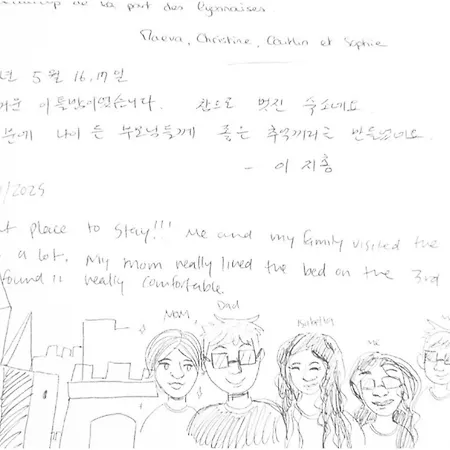 de la part des lyonnaises
Maeva, Christine, Caitlin et Sophie
년 5월 16, 17일
이틀밤이었습니다. 참으로 멋진 숙소네요.
분에 나이 든 부모님들께 좋은 추억거리를 만들었네요.
- 이 지홍
/2025
place to stay!!! Me and my family visited the
a lot. My mom really liked the bed on the 3rd
found it really comfortable.
MOM Dad Isabella Me